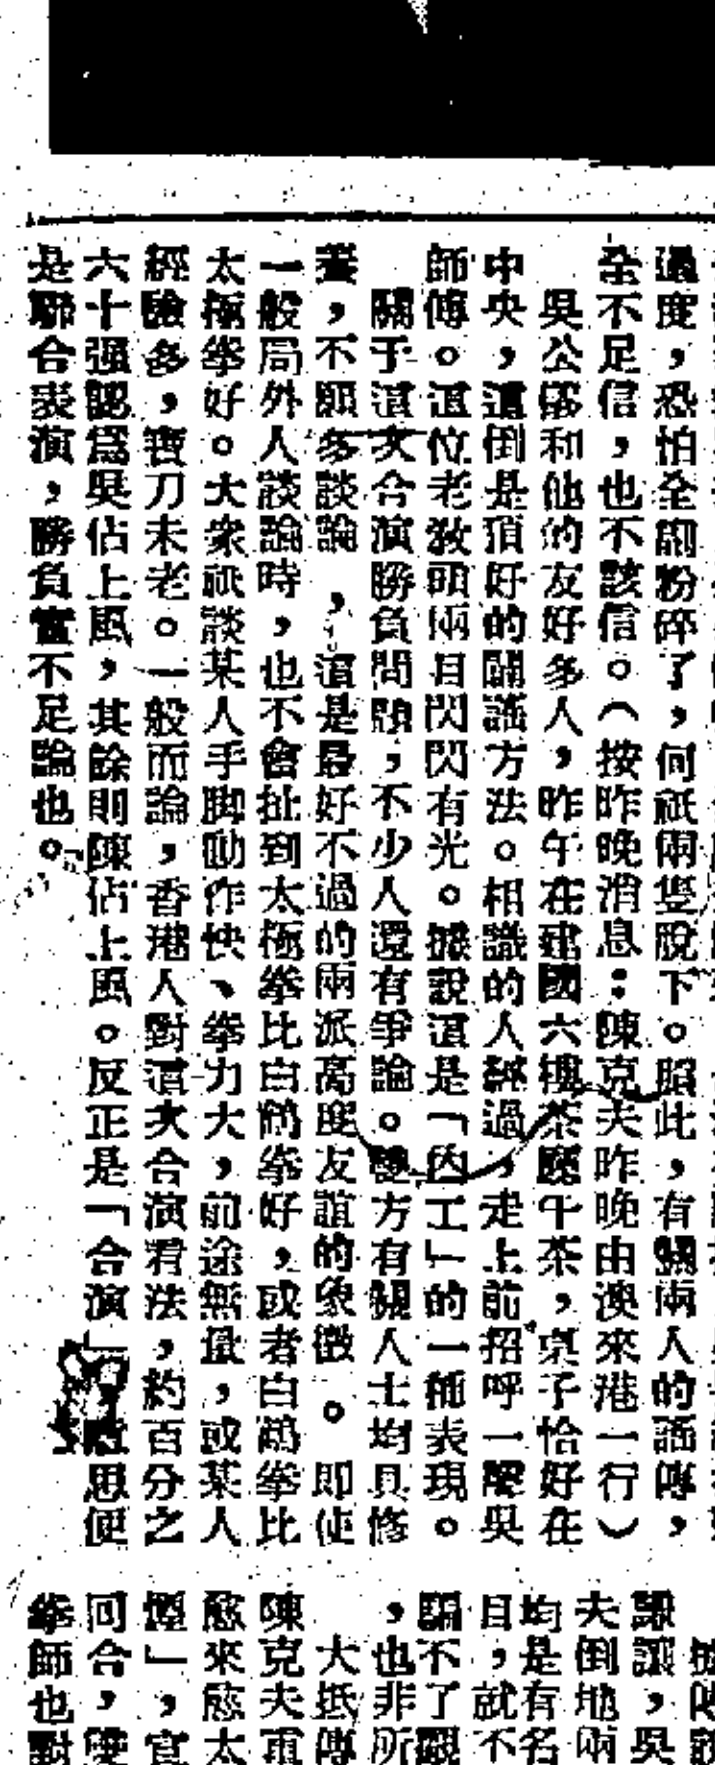 過度，恐怕全副粉碎了，何祇兩隻脫下。照此，有關兩人的謠傳，
全不足信，也不該信。（按昨晚消息：陳克夫昨晚由澳來港一行）
吳公儀和他的友好多人，昨午在建國六樓茶廳午茶，桌子恰好在
中央，這倒是頂好的闢謠方法。相識的人經過，走上前招呼一聲吳
師傅。這位老教頭兩目閃閃有光。據說這是「內工」的一種表現。
關于這次合演勝負問題，不少人還有爭論。雙方有關人士均具修
養，不願多談論，這是最好不過的兩派高度友誼的象徵。即使
一般局外人談論時，也不會扯到太極拳比白鶴拳好，或者白鶴拳比
太極拳好。大衆祇談某人手脚動作快、拳力大，前途無量，或某人
經驗多，寶刀未老。一般而論，香港人對這次合演看法，約百分之
六十强認爲吳佔上風，其餘則陳佔上風。反正是「合演」意思便
是聯合表演，勝負當不足論也。
謙讓，吳
夫倒地兩
均是有名
目，就不
騙不了觀
，也非所
大抵傳
陳克夫重
愈來愈太
煙」，官
回合，雙
拳師也對